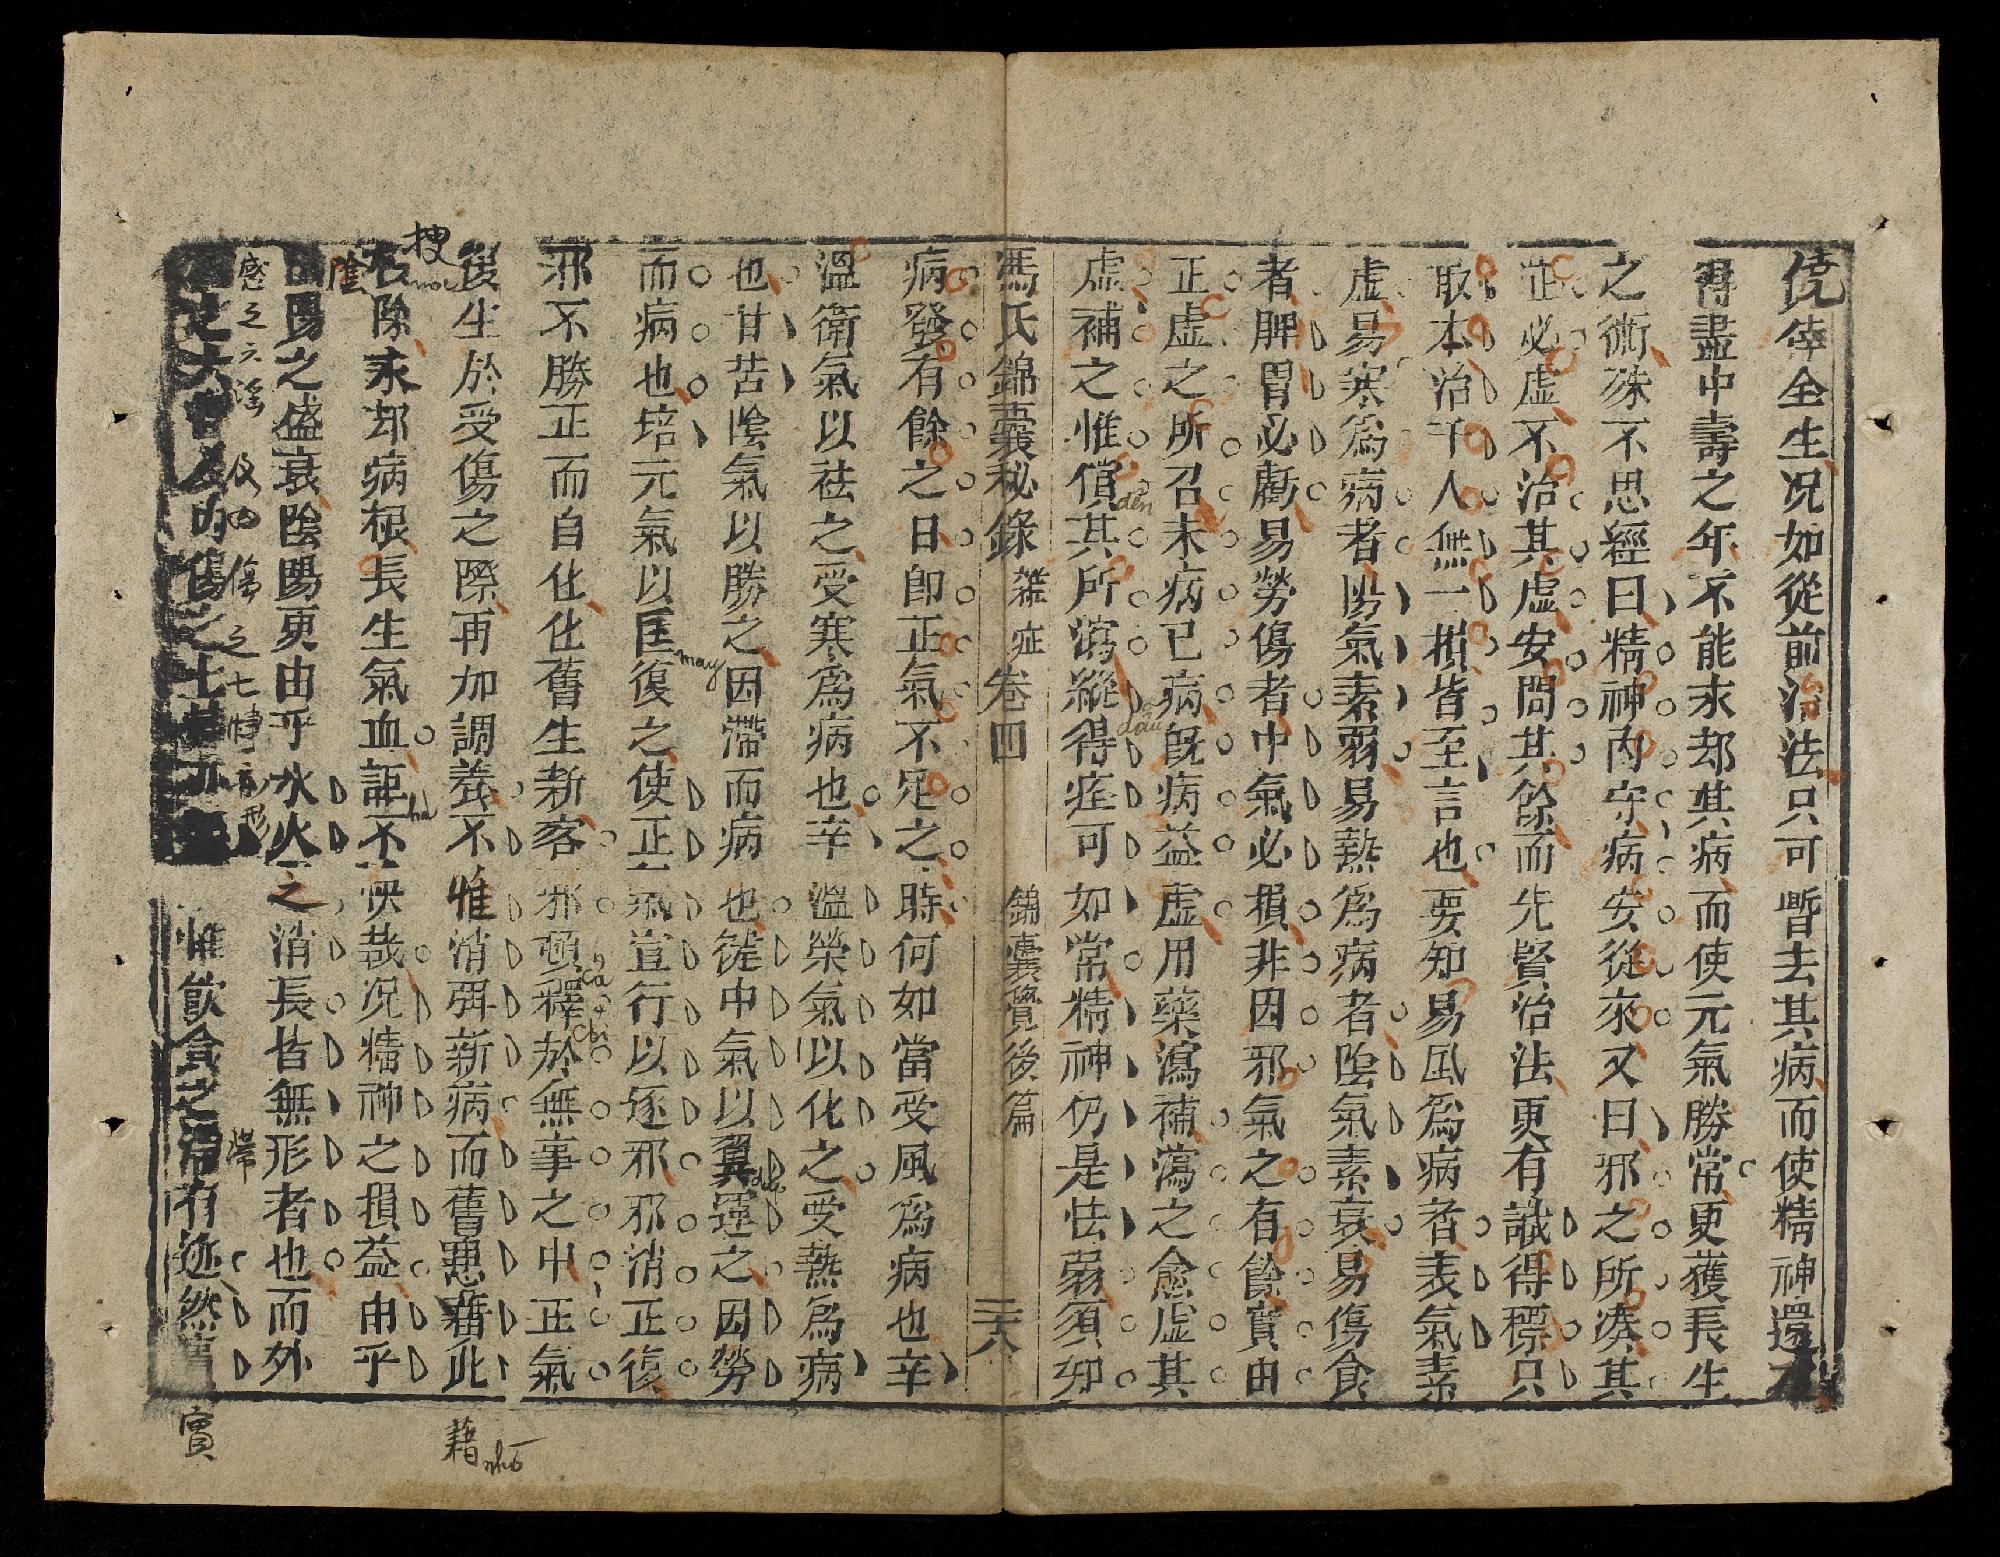 僥倖全生况如從前治法只可暫去其病而使精神還
得盡中壽之年不能求却其病而使元氣勝常更獲長生
之術殊不思經曰精神內守病安從來又曰邪之所凑其
正必虛不治其虛安問其餘而先賢治法更有議得標只
取本治千人無一損皆至言也要知易風爲病者表氣素
虛易寒爲病者陽氣素弱易熱爲病者陰氣素衰易傷食
者脾胃必虧易勞傷者中氣必損非因邪氣之有餘實由
正虛之所召未病已病旣病益虛用藥瀉補瀉之愈虛其
虛補之惟償其所瀉縱得痊可如常精神仍是怯弱須卯
馮氏錦囊秘錄 雜症 卷四 錦囊覺後篇 二十八
病發有餘之日卽正氣不足之時何如當受風爲病也辛
溫衛氣以祛之受寒爲病也辛溫榮氣以化之受熱爲病
也甘苦陰氣以勝之因滯而病也健中氣以翼運之因勞
而病也培元氣以匡復之使正氣宣行以逐邪邪消正復
邪不勝正而自化化舊生新客邪頓釋於無事之中正氣
後生於受傷之際再加調養不惟消弭新病而舊患藉此
搜
mò
除求却病根長生氣血詎不快哉况精神之損益由乎
陰陽之盛衰陰陽更由乎水火之消長皆無形者也而外
感之六淫及內傷之七情亦無形
惟飲食之滯有迹然舊
may
há
cả
chi
đến
dầu
滯
實
藉
nhờ